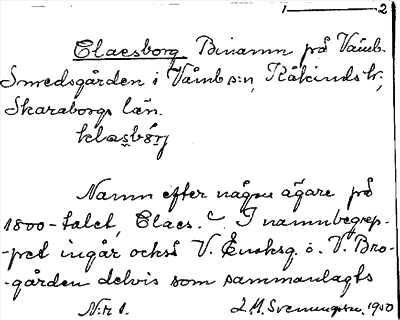 1 — 2
Claesborg Binamn på Våmb-
Smedsgården i Våmb s:n, Kåkinds hd,
Skaraborgs län.
Namn efter någon ägare på
1800-talet, Claes. I namnbegrep-
-pet ingår också V. Ensksg. o. V. Bro-
-gården delvis som sammanlagts
N:r 1. 1950